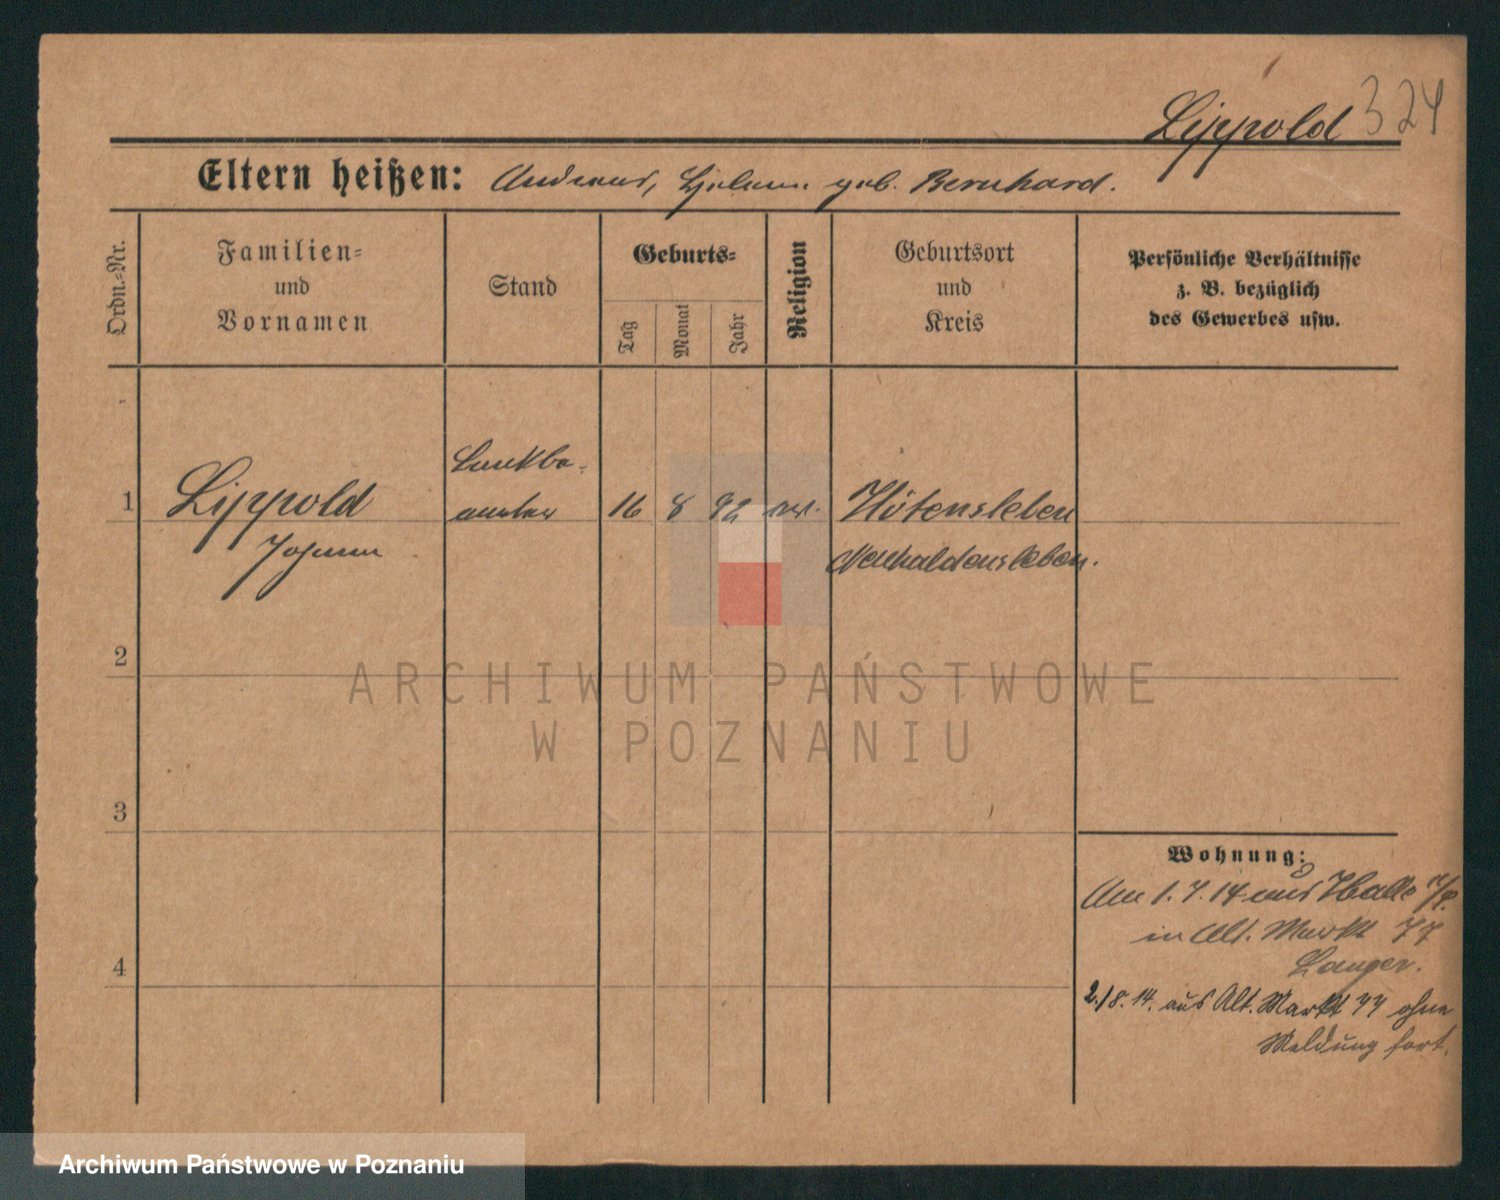 324
Lippold
Eltern heißen: Andreas, geb. Bernhard.
Ordn.=Nr.
Familien=
und
Vornamen
Stand
Geburts=
Tag
Monat
Jahr
Religion
Geburtsort
und
Kreis
Persönliche Verhältnisse
z. B. bezüglich
des Gewerbes usw.
1
Lippold
Johann
Bankbe-
amter
16 8 92 ev.
Hötensleben
Neuhaldensleben.
2
ARCHIWUM PAŃSTWOWE
W POZNANIU
3
4
Wohnung:
Am 1.7.14 aus Halle a/S.
in Alt. Markt 77
Langer.
2./8.14. aus Alt. Markt 77 ohne
Meldung fort.
Archiwum Państwowe w Poznaniu